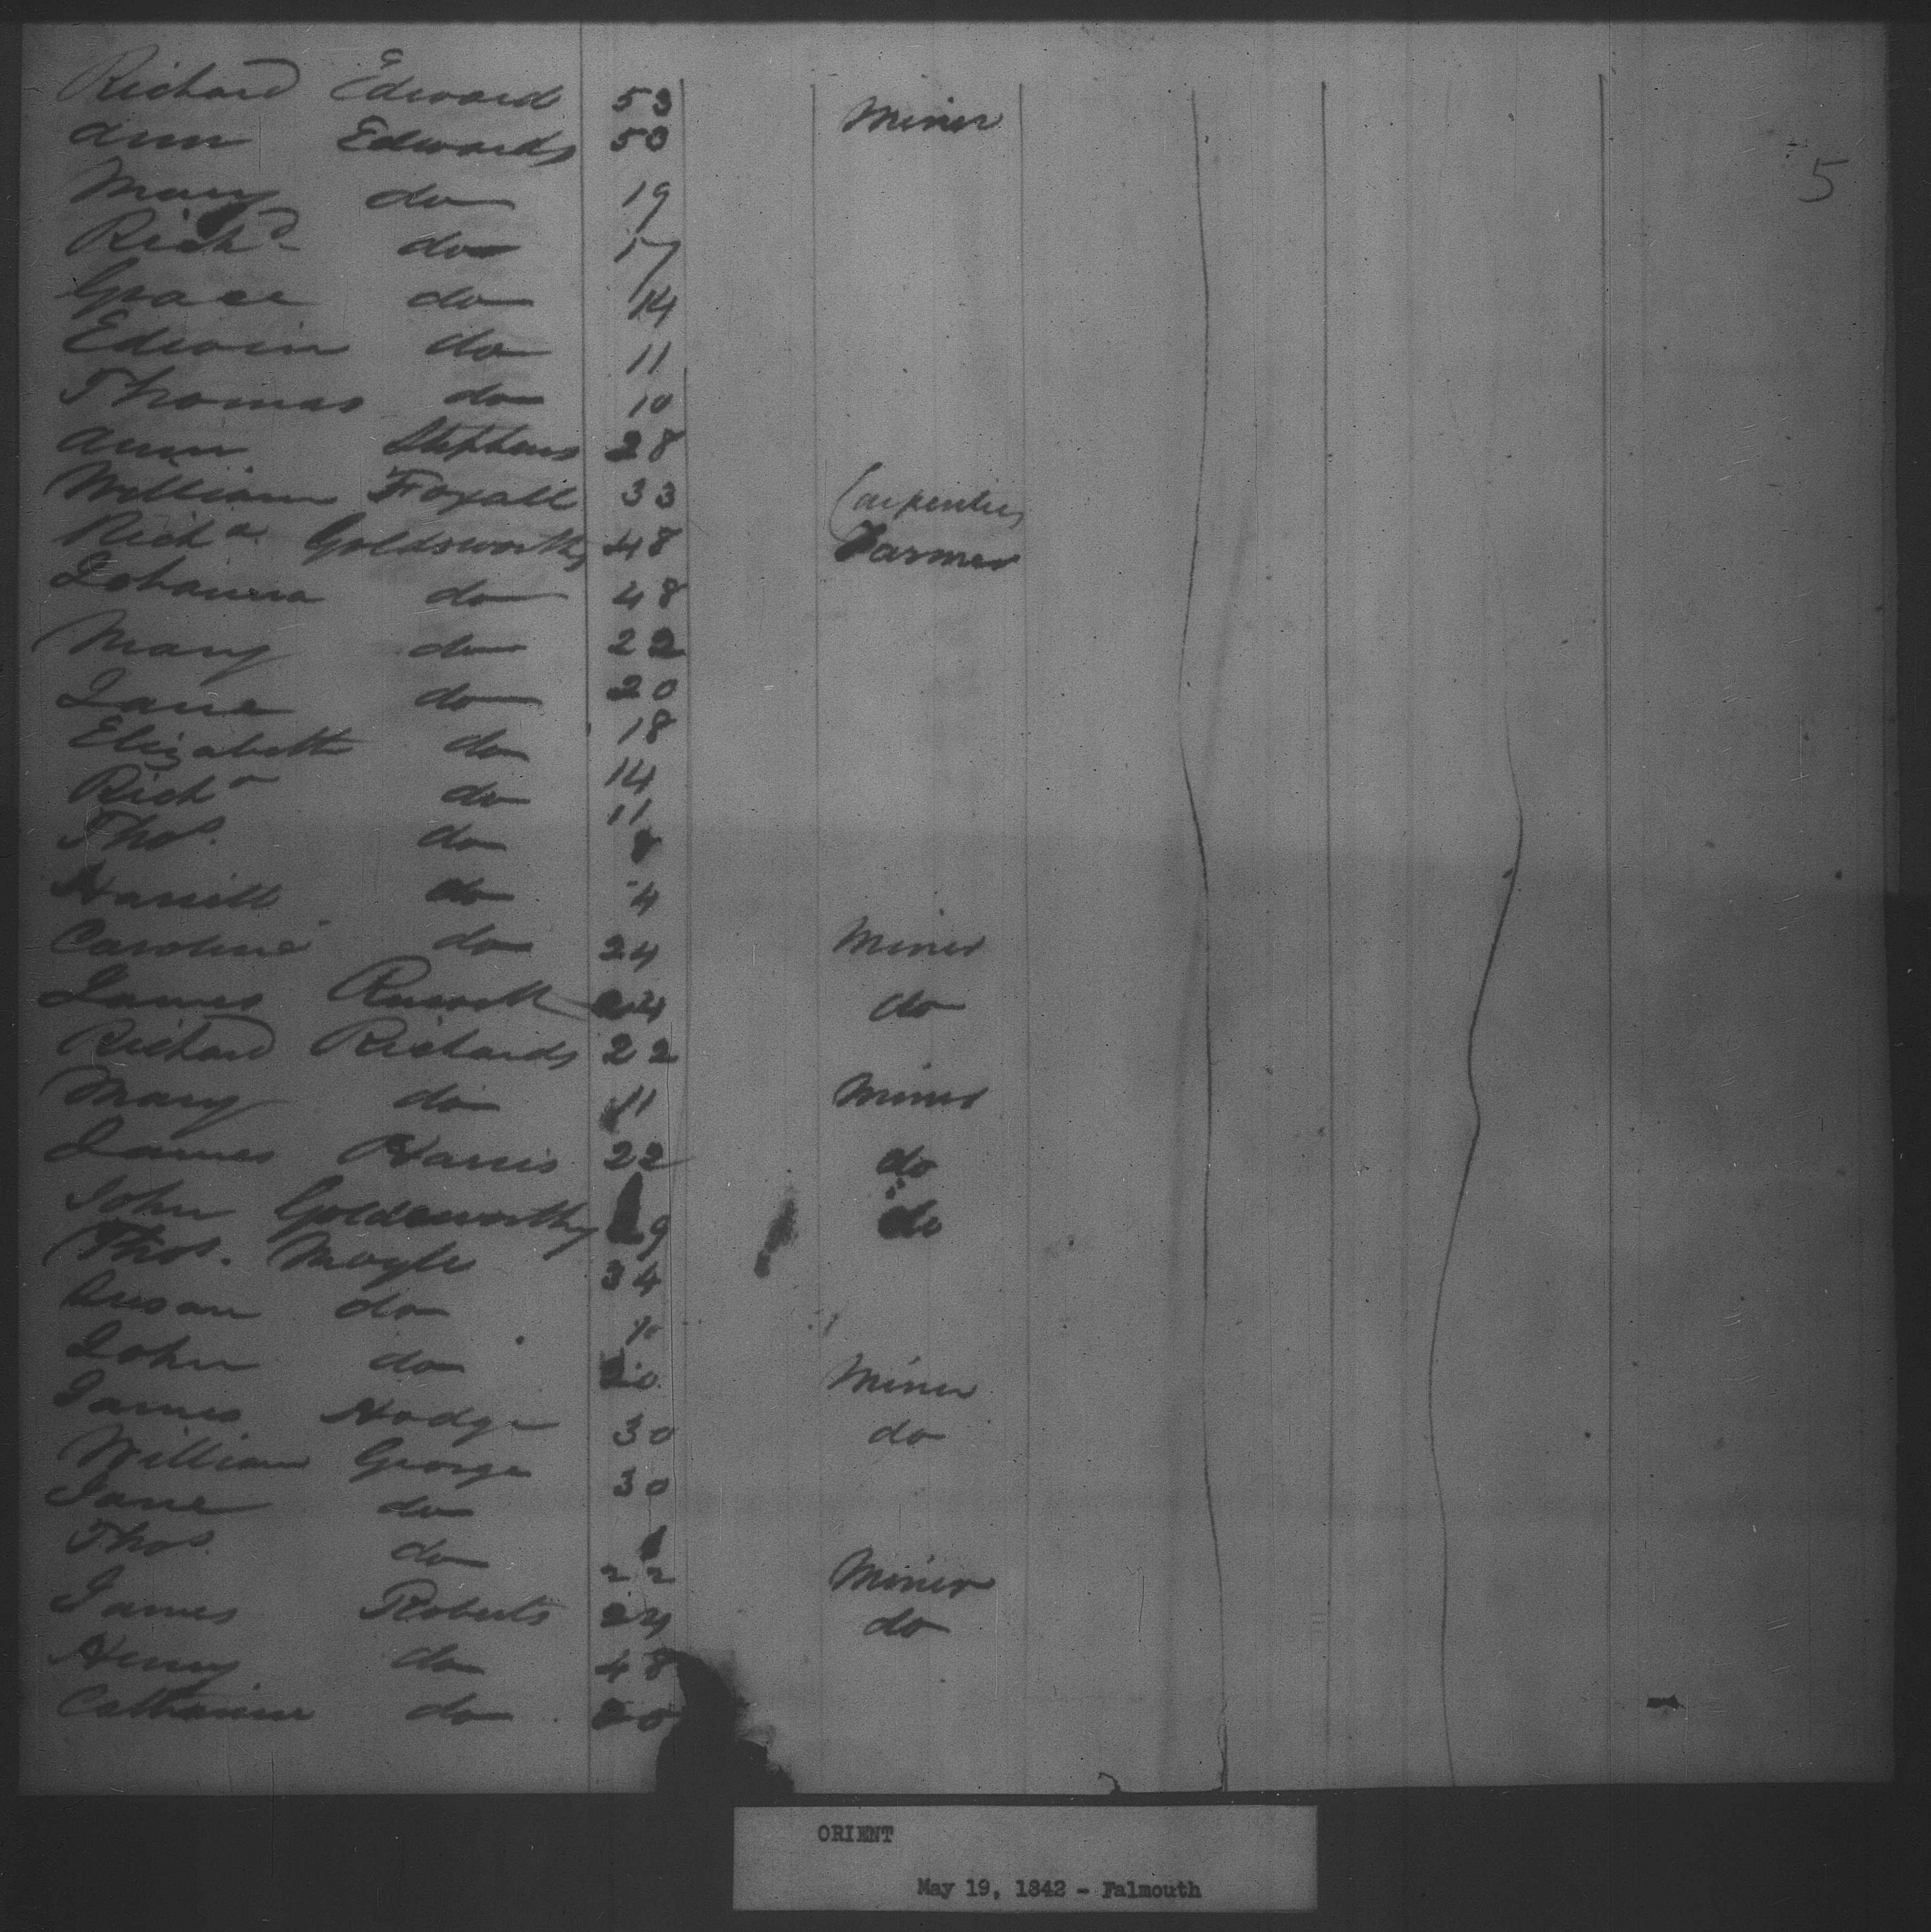 Richard Edward 53 Miner
Ann Edwards 50
5
Mary do 19
Richd do 17
Grace do 14
Edwin do 11
Thomas do 10
Ann Stephens 28
William Foxall 33 Carpenter
Richd Goldsworthy 48 Farmer
Johanna do 48
Mary do 22
Jane do 20
Elizabeth do 18
Richd do 14
Thos. do 11
Harriett do
Caroline do 4
James 24 Miner
Richard Richards 24 do
Mary do 22
James Harris 11 Miner
John Goldsworthy 22 do
Thos. Moyle 29 do
Susan do 34
John do 10
James Hodge 20 Miner
William George 30 do
Jane do 30
Thos do
James Roberts 22 Miner
Henry do 24 do
Catharine do 48
ORIENT
May 19, 1842 - Falmouth